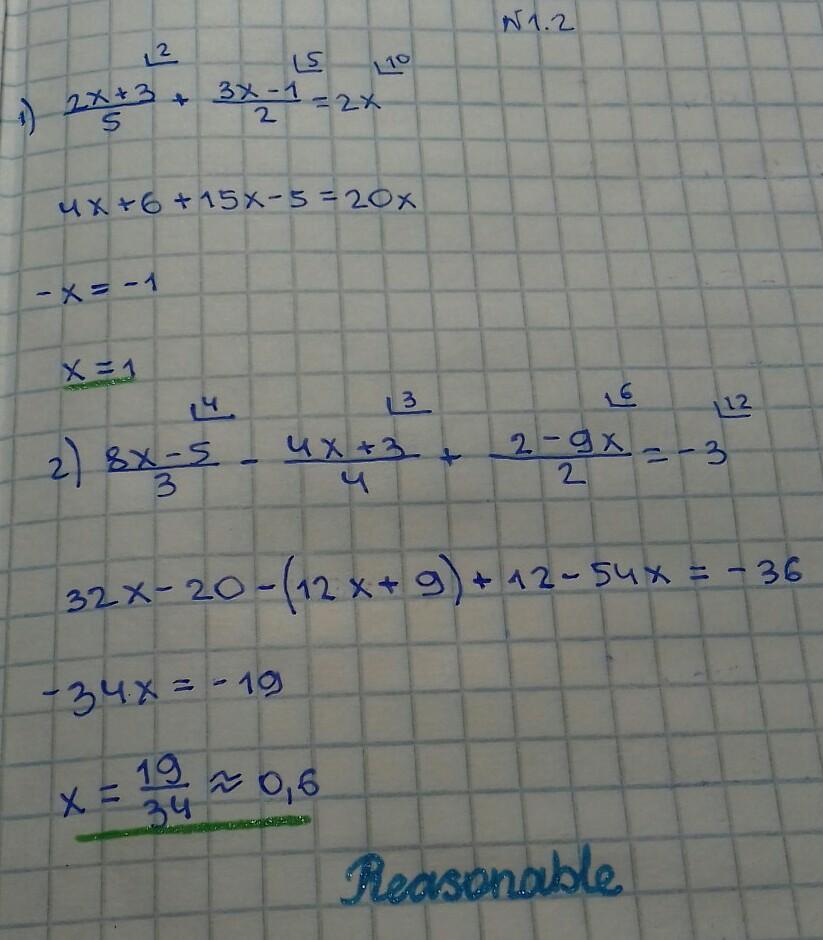 N1.2
1) (2x+3)/5 ⌊2 + (3x-1)/2 ⌊5 = 2x ⌊10
4x+6+15x-5=20x
-x=-1
x=1
2) (8x-5)/3 ⌊4 - (4x+3)/4 ⌊3 + (2-9x)/2 ⌊6 = -3 ⌊12
32x-20-(12x+9)+12-54x=-36
-34x=-19
x=19/34≈0,6
Reasonable